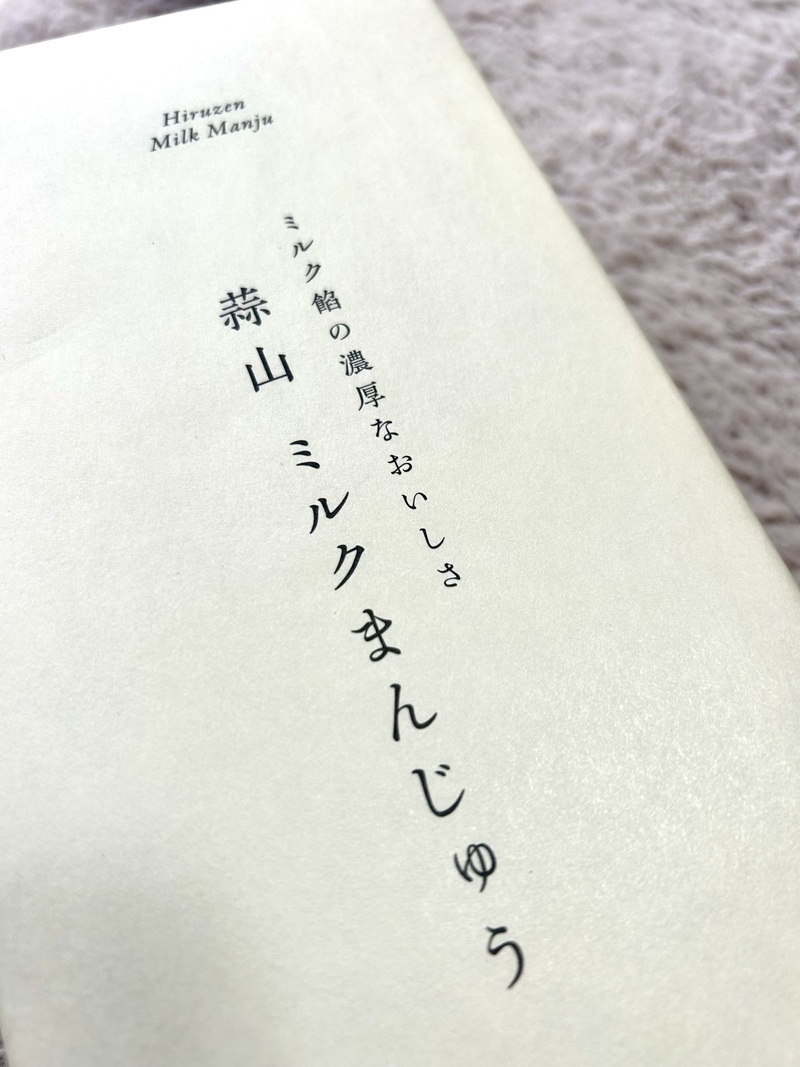 Hiruzen
Milk Manju
ミルク餡の濃厚なおいしさ
蒜山 ミルクまんじゅう